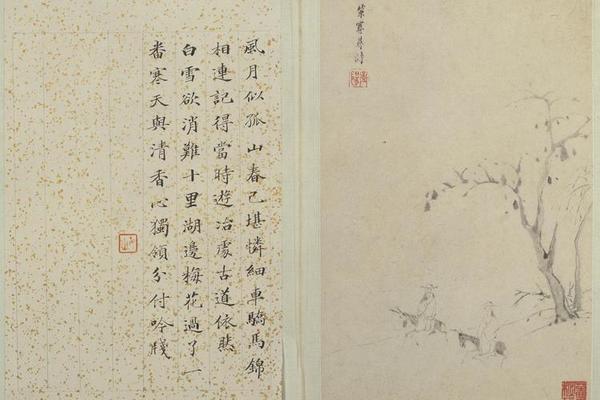 策蹇尋詩
風月似孤山春已堪憐細車驕馬錦
相連記得當時遊冶處古道依然
白雪欲消難十里湖邊梅花過了一
畨寒天與清香心獨領分付吟牋